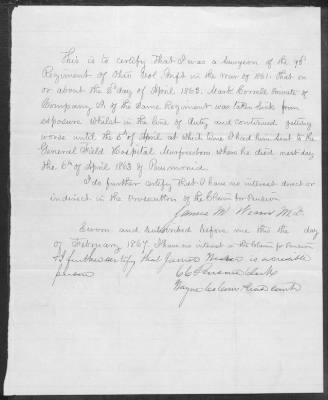 This is to certify that I was a surgeon of the
Regiment of Ohio Vol. Inft in the war of 1861. that on
or about the 2d day of April 1863. Mark Correll Private of
Company A of the Same Regiment was taken Sick from
exposure whilst in the line of duty and continued getting
worse until the 5th of April at which time I had him sent to the
General Field Hospital Murfreesboro where he died next day
the 6th of April 1863 of Pneumonia.
I do further certify that I have no interest direct or
indirect in the Prosecution of the Claim for Pension
James M M.D.
Sworn and Subscribed before me this the day
of February 1867. I have no interest in the Claim for Pension
& I further certify that James is a credible
person
Clerk
Wayne Co